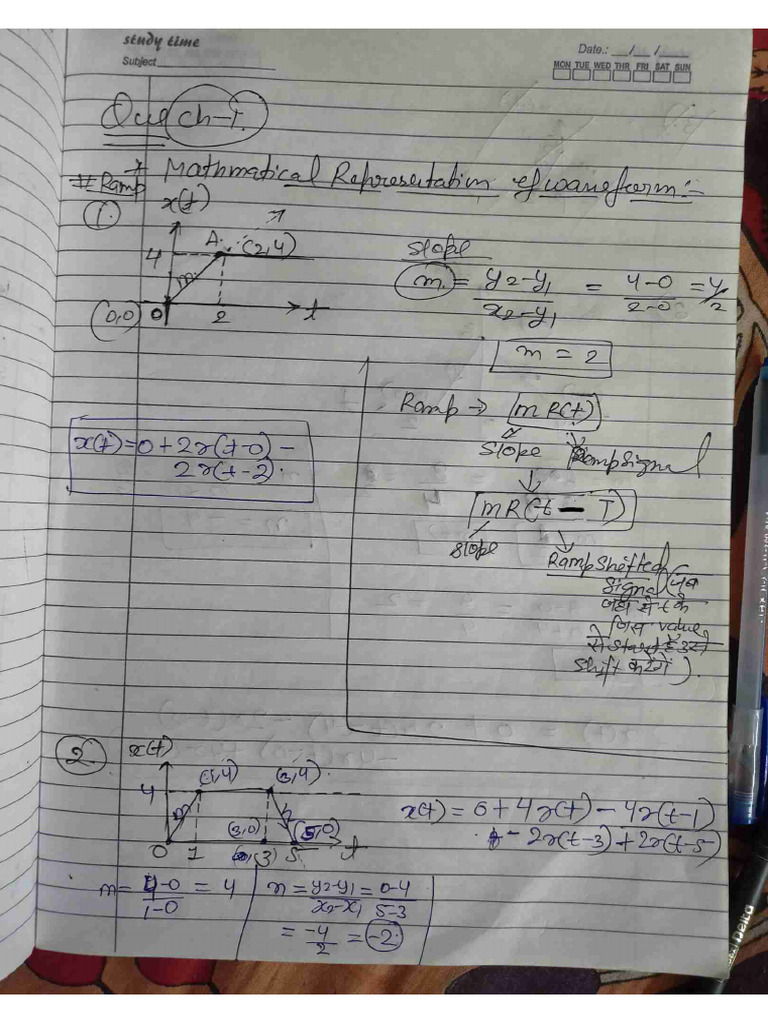 study time
Subject
Date.: __/__/__
MON TUE WED THR FRI SAT SUN
Que ch-1.
* Mathmatical Representation of waveform:-
# Ramp
1.
x(t)
A. (2,4)
4
m
(0,0) 0 2 t
slope
m = y2-y1 / x2-y1 = 4-0 / 2-0 = 4/2
m = 2
Ramp → mR(t)
slope Ramp Signal
mR(t - T)
slope
Ramp Shifted
Signal
value
shift करेंगे).
x(t) = 0 + 2r(t-0) -
2r(t-2).
2
x(t)
(1,4) (3,4)
4
m n
(3,0) (5,0)
0 1 3) 5 t
x(t) = 0 + 4r(t) - 4r(t-1)
- 2r(t-3) + 2r(t-5)
m = 4-0 / 1-0 = 4
n = y2-y1 / x2-x1 = 0-4 / 5-3
= -4 / 2 = -2